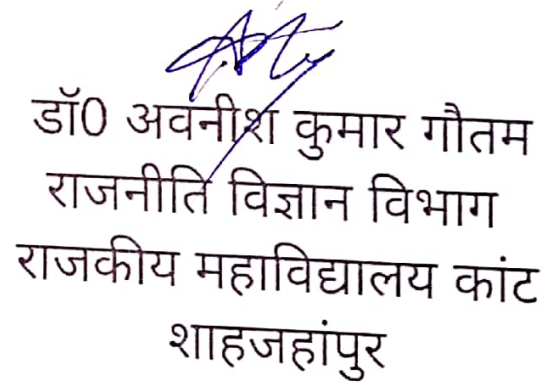 डॉ0 अवनीश कुमार गौतम
राजनीति विज्ञान विभाग
राजकीय महाविद्यालय कांट
शाहजहांपुर